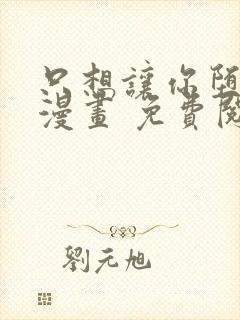 只想讓你墮
漫畫 免費閱
劉元旭